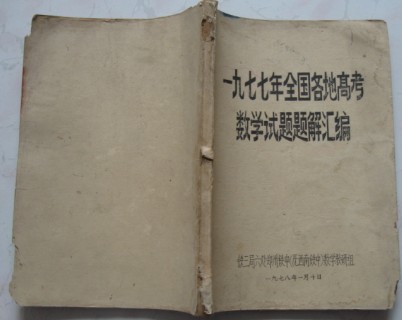 一九七七年全国各地高考
数学试题题解汇编
数学教研组
一九七八年一月十日